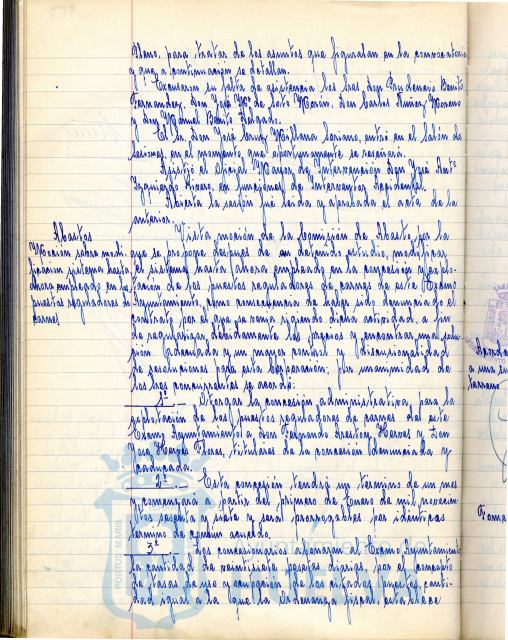 Pleno, para tratar de los asuntos que figuraban en la convocatoria
y que a continuación se detallan.
Excusaron su falta de asistencia los Sres. Don Prudencio Benito
Fernandez, Don José Mª de Soto Morón, Don Carlos Núñez Moreno
y Don Manuel Benito Delgado.
El Sr. Don José Cruz Millana Soriano, entró en el Salón de
Sesiones, en el momento que oportunamente se reseñará.
Asistió el Oficial Mayor de Intervención Don José Antº
Izquierdo Rivero, en funciones de Interventor Accidental.
Abierta la sesión fué leída y aprobada el acta de la
anterior.
Abastos
Moción sobre modi-
ficación sistema hasta
ahora empleado en los
puestos reguladores de
carnes
Vista moción de la Comisión de Abastos por la
que se propone después de un detenido estudio, modificar
el sistema hasta ahora empleado en la concesión y explo-
tación de los puestos reguladores de carnes de este Excmo
Ayuntamiento, como consecuencia de haber sido denunciado el
contrato por el que se venía rigiendo dicha actividad, a fin
de regularizar debidamente los precios y encontrar una solu-
ción adecuada y un mayor control y discrecionalidad
de resoluciones para esta Corporación; por unanimidad de
los Sres concurrentes se acordó:
1º.- Otorgar la concesión administrativa, para la
explotación de los puestos reguladores de carnes de este
Excmo Ayuntamiento a Don Fernando Hierves y Don
José Flores, titulares de la concesión denunciada y
caducada.
2º.- Esta concesión tendrá un término de un mes
y comenzará a partir del primero de Enero de mil novecien-
tos sesenta y siete y será prorrogables por idénticos
término de común acuerdo.
3º Los concesionarios abonarán al Excmo Ayuntamiento
la cantidad de veintisiete pesetas diarias, por el concepto
de tasas de uso y ocupación de los citados puestos canti-
dad igual a la que la Ordenanza fiscal establece
PORTUS MARIS